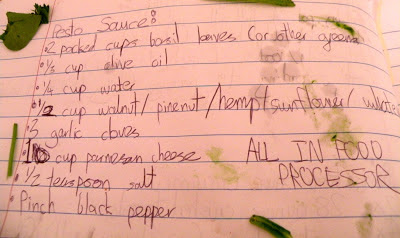 Pesto Sauce:
• 2 packed cups basil leaves (or other greens
• 1/3 cup olive oil
• 1/4 cup water
• 1/2 cup walnut/pinenut/hemp/sunflower/
• 3 garlic cloves
• cup parmesan cheese ALL IN FOOD
• 1/2 teaspoon salt PROCESSOR
• Pinch black pepper